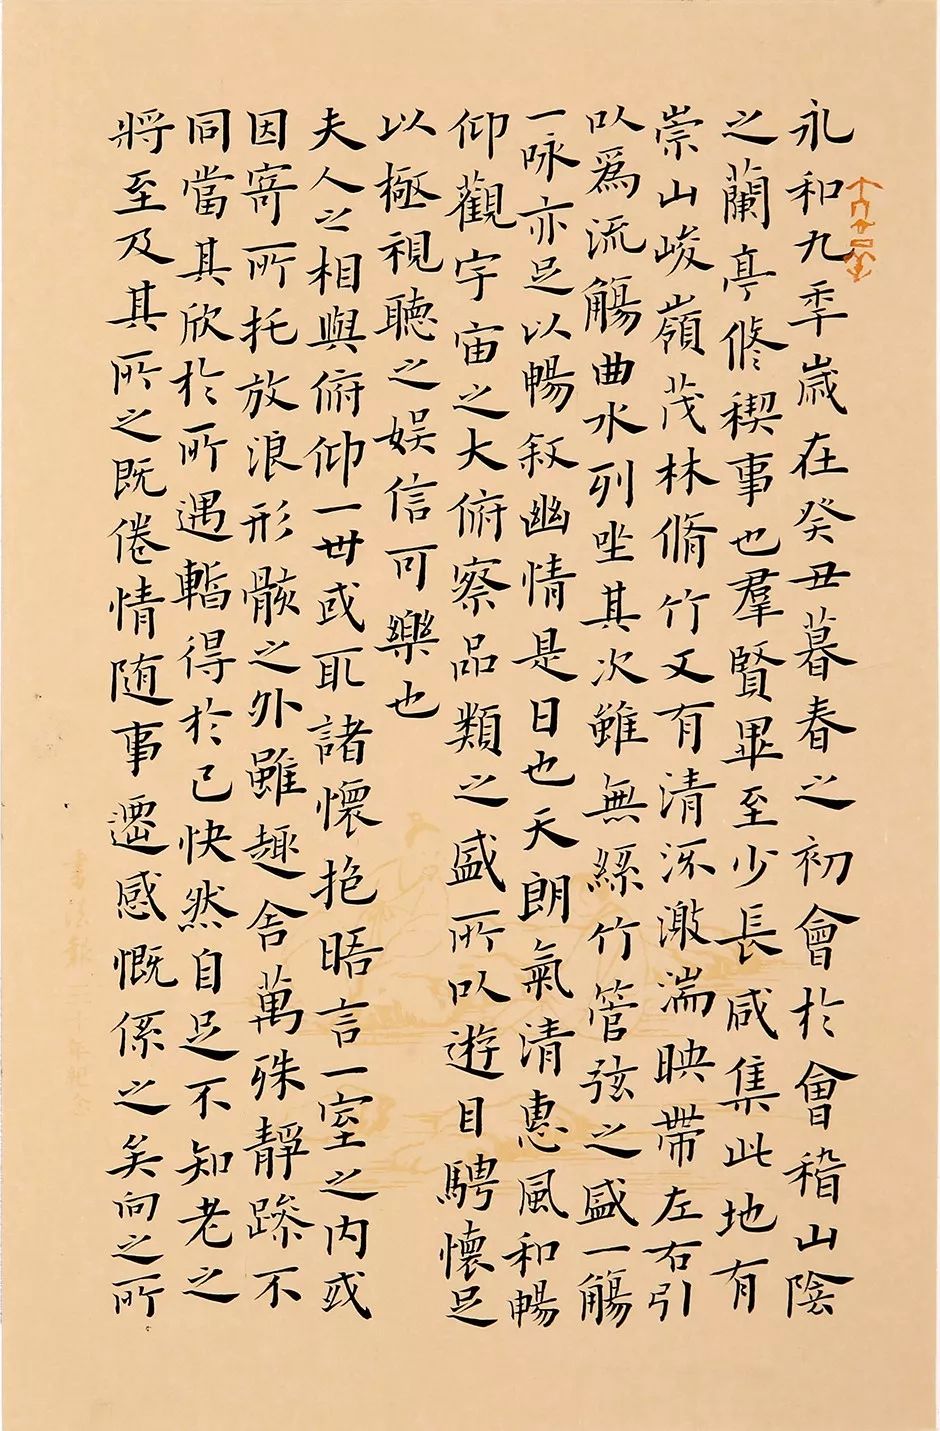 永和九季歲在癸丑暮春之初會於會稽山陰
之蘭亭修稧事也羣賢畢至少長咸集此地有
崇山峻嶺茂林脩竹又有清流激湍映帶左右引
以爲流觴曲水列坐其次雖無絲竹管弦之盛一觴
一咏亦足以暢敘幽情是日也天朗氣清惠風和暢
仰觀宇宙之大俯察品類之盛所以遊目騁懷足
以極視聽之娱信可樂也
夫人之相與俯仰一世或取諸懷抱晤言一室之内或
因寄所托放浪形骸之外雖趣舍萬殊静躁不
同當其欣於所遇暫得於己快然自足不知老之
將至及其所之既倦情随事遷感慨係之矣向之所